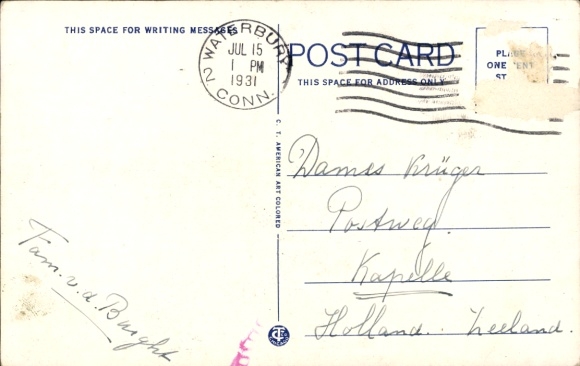 THIS SPACE FOR WRITING MESSAGES
WATERBURY
JUL 15
1 PM
1931
2 CONN.
POST CARD
THIS SPACE FOR ADDRESS ONLY
PLACE
ONE CENT
ST
C. T. AMERICAN ART COLORED
Dames Krüger
Postweg.
Kapelle
Holland. Zeeland.
Fam. v. d. Burght